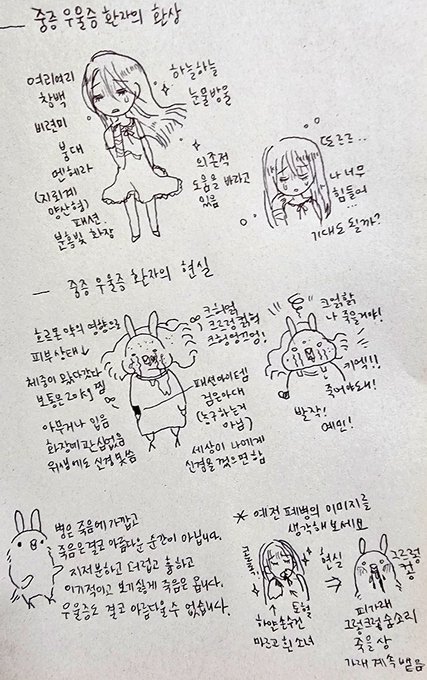 중증 우울증 환자의 환상
여리여리
창백
비련미
붕대
멘헤라
(지뢰계
양산형)
패션.
분홍빛 화장
하늘하늘
눈물방울
의존적
도움을 바라고
있음
또르르..
나 너무
힘들어
...
기대도 될까?
중증 우울증 환자의 현실
호르몬약의 영향으로
피부상태↓
체중이 왔다갔다
보통은 20kg 찜
아무거나 입음
화장에 관심없음
위생에도 신경 못씀
패션아이템
검은아대
(농구하는거
아님)
세상이 나에게
신경을 껐으면 함
나 죽을거야!
키엑!!
죽어야돼!
발작!
예민!
병은 죽음에 가깝고
죽음은 결코 아름다운 순간이 아닙니다.
지저분하고 더럽고 흉하고
이기적이고 보기싫게 죽음은 옵니다.
우울증도 결코 아름다울 수 없습니다.
* 예전 폐병의 이미지를
생각해보세요
하얀손수건
토혈
마르고 흰 소녀
현실
⇒
그르렁
컹
피가래
그렁크렁 숨소리
죽을상
가래 계속 뱉음